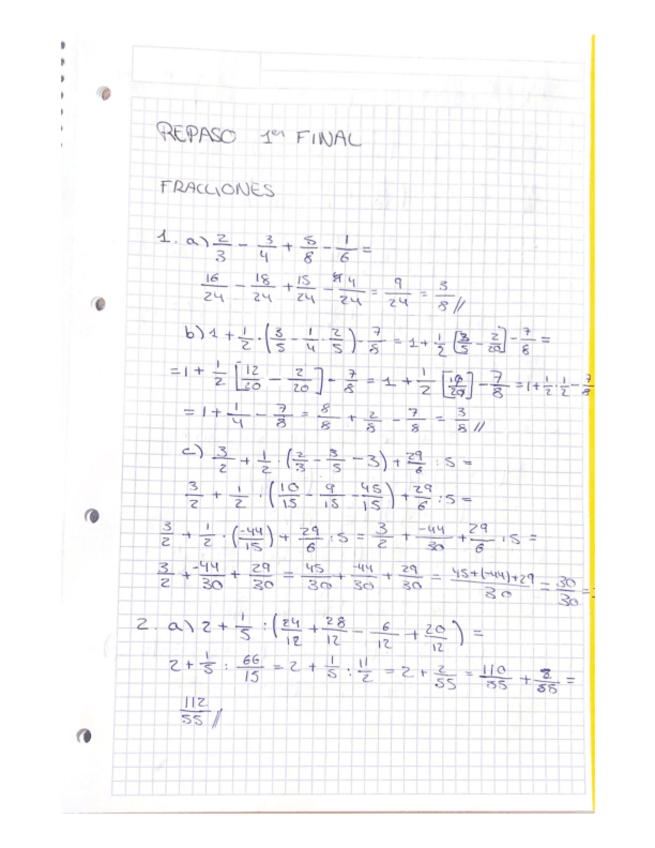 REPASO 1er FINAL
FRACCIONES
1. a) 2/3 - 3/4 + 5/8 - 1/6 =
16/24 - 18/24 + 15/24 - 4/24 = 9/24 = 3/8 //
b) 1 + 1/2 · (3/5 - 1/4 · 2/5) - 7/8 = 1 + 1/2 [3/5 - 2/20] - 7/8 =
= 1 + 1/2 [12/20 - 2/20] - 7/8 = 1 + 1/2 [10/20] - 7/8 = 1 + 1/2 · 1/2 - 7/8
= 1 + 1/4 - 7/8 = 8/8 + 2/8 - 7/8 = 3/8 //
c) 3/2 + 1/2 · (2/3 - 3/5 - 3) + 29/6 : 5 =
3/2 + 1/2 · (10/15 - 9/15 - 45/15) + 29/6 : 5 =
3/2 + 1/2 · (-44/15) + 29/6 : 5 = 3/2 + -44/30 + 29/6 : 5 =
3/2 + -44/30 + 29/30 = 45/30 + -44/30 + 29/30 = 45+(-44)+29/30 = 30/30 =
2. a) 2 + 1/5 : (24/12 + 28/12 - 6/12 + 20/12) =
2 + 1/5 : 66/15 = 2 + 1/5 : 11/2 = 2 + 2/55 = 110/55 + 2/55 =
112/55 //